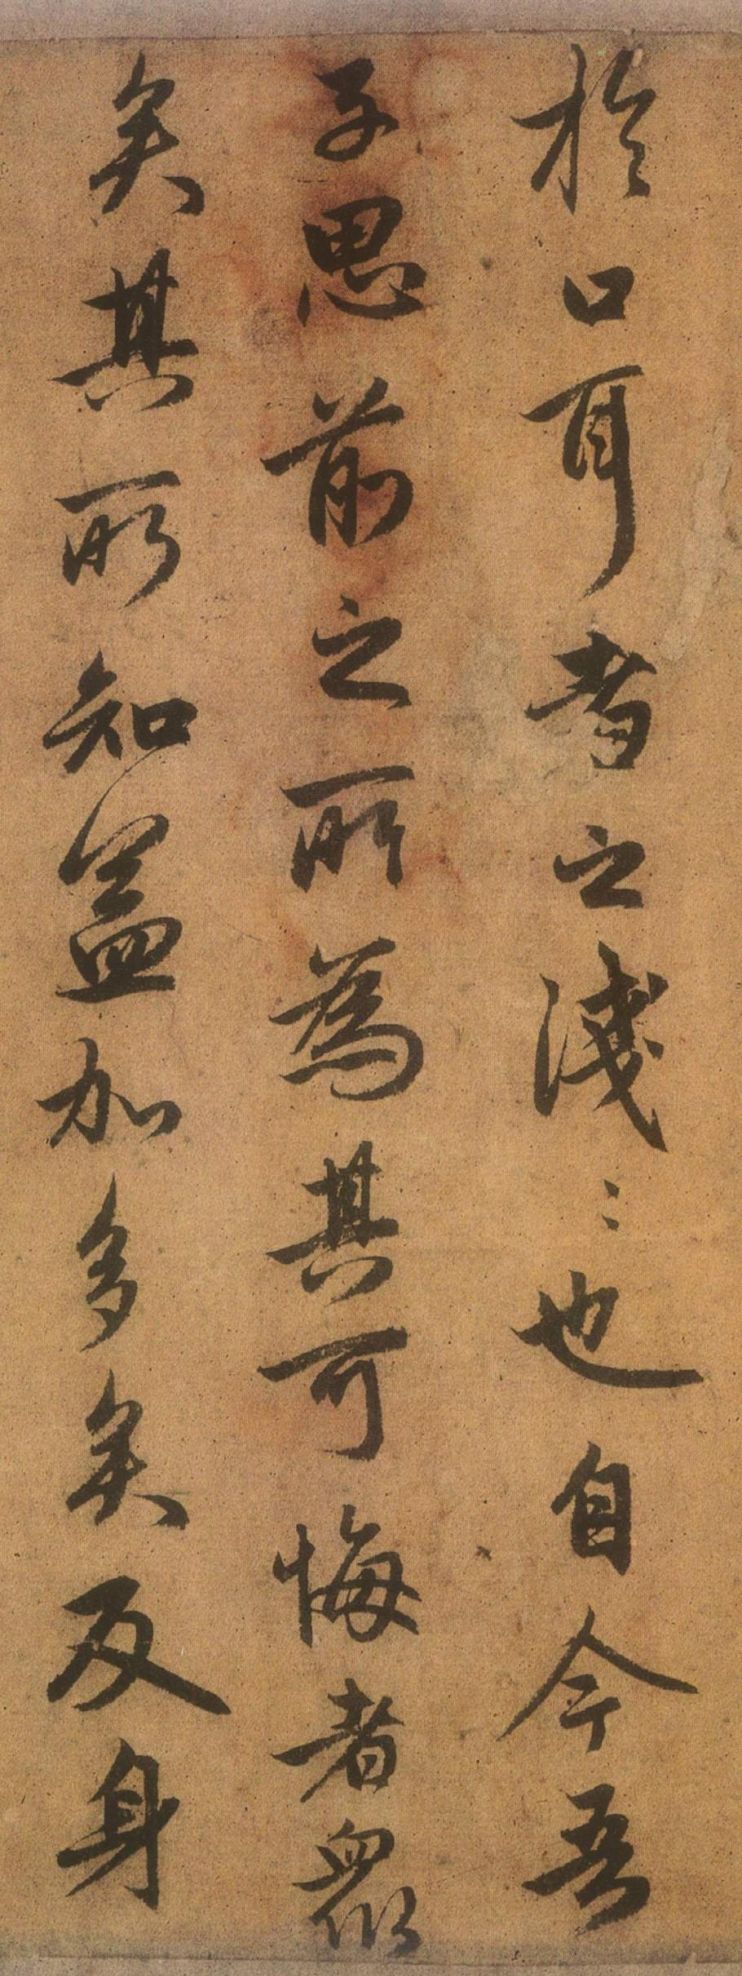 於口耳者之淺〻也自今吾
子思前之所為其可悔者眾
矣其所知益加多矣反身